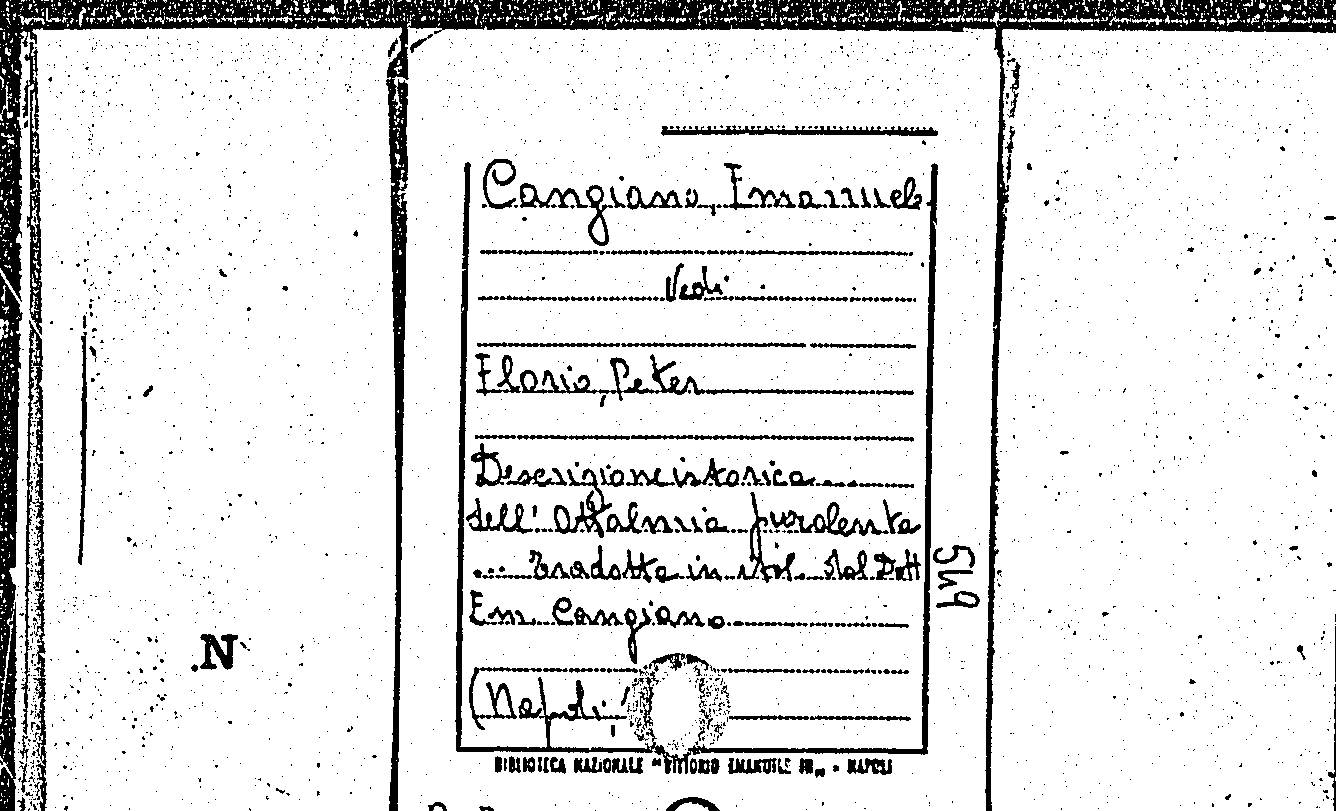 Cangiano, Emanuele
Vedi
Florio, Peter
Descrizione istorica....
dell' Oftalmia purolenta
... Tradotta in ital. dal Dott
Em. Cangiano
(Napoli,
BIBLIOTECA NAZIONALE "VITTORIO EMANUELE III" - NAPOLI
549
.N